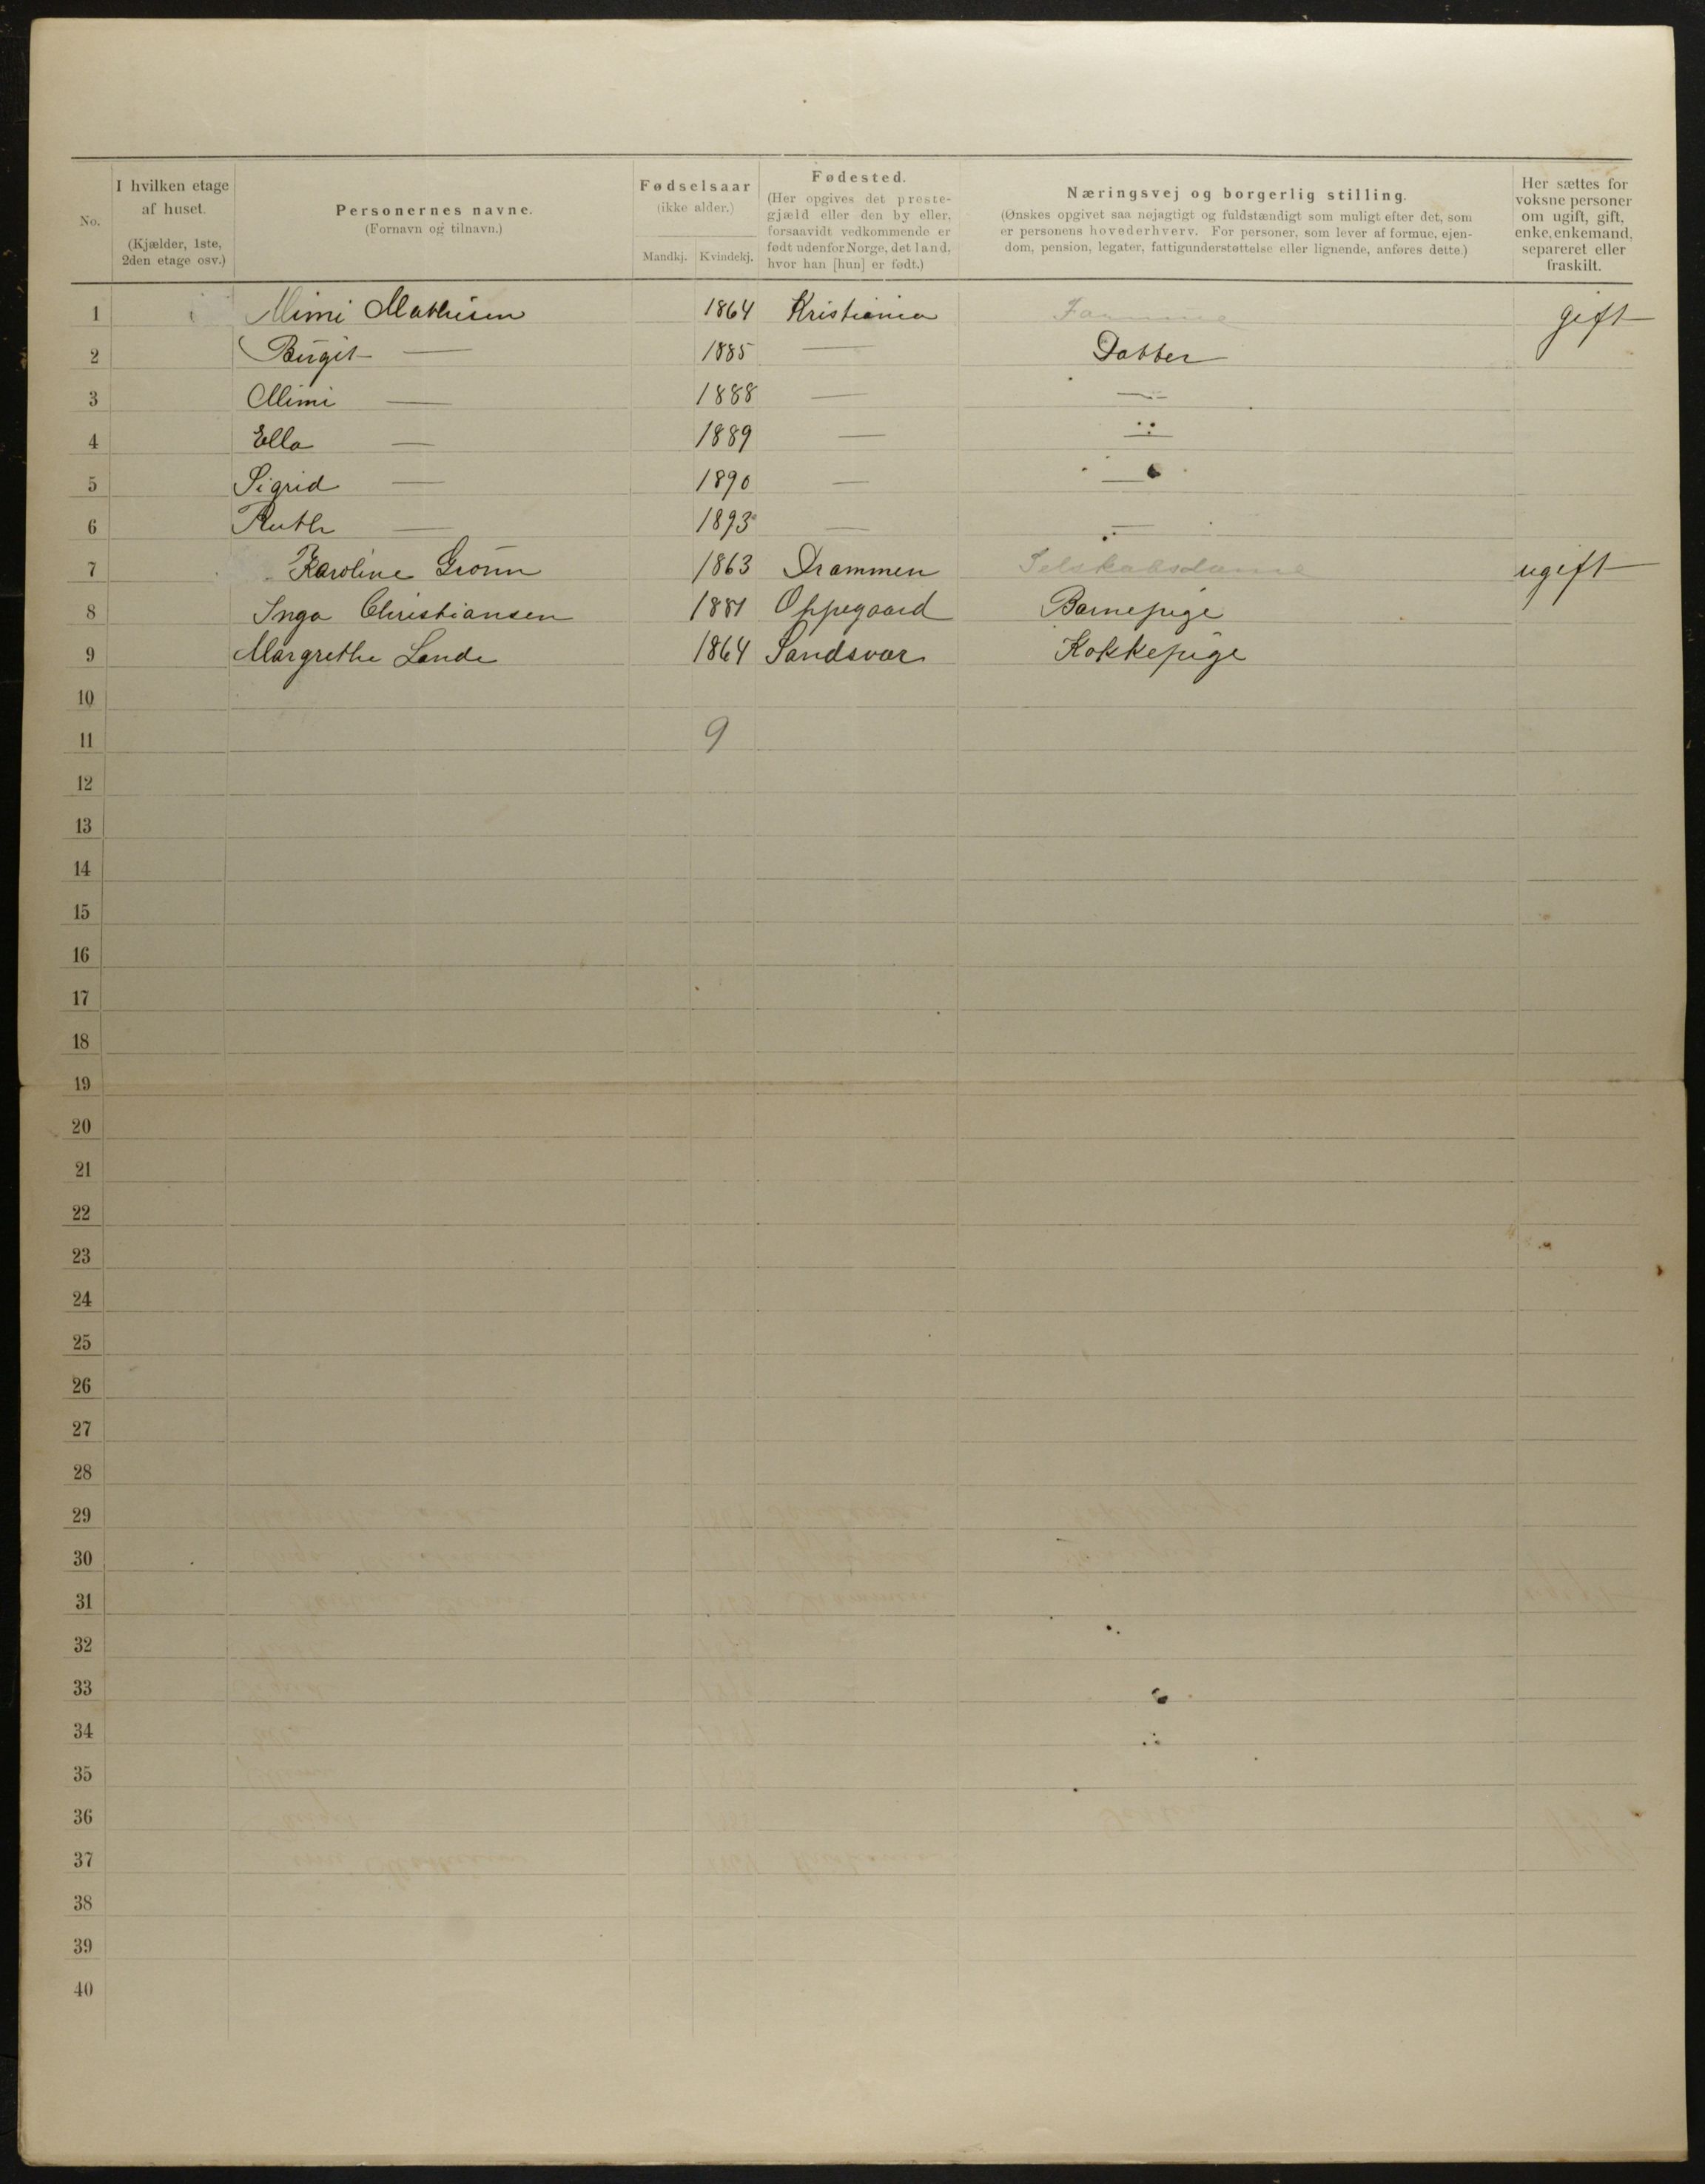 No.
I hvilken etage af huset. (Kjælder, 1ste, 2den etage osv.)
Personernes navne. (Fornavn og tilnavn.)
Fødselsaar (ikke alder.) Mandkj. Kvindekj.
Fødested. (Her opgives det prestegjæld eller den by eller, forsaavidt vedkommende er født udenfor Norge, det land, hvor han [hun] er født.)
Næringsvej og borgerlig stilling.
(Ønskes opgivet saa nøjagtigt og fuldstændigt som muligt efter det, som
er personens hovederhverv. For personer, som lever af formue, ejen-
dom, pension, legater, fattigunderstøttelse eller lignende, anføres dette.)
Her sættes for voksne personer om ugift, gift, enke, enkemand, separeret eller fraskilt.
1 Mimi Mathisen 1864 Kristiania gift
2 Birgit — 1885 — Datter
3 Mimi — 1888 — —
4 Ella — 1889 — —
5 Sigrid — 1890 — —
6 Ruth — 1893 — —
7 Karoline Grønn 1863 Drammen Selskabsdame ugift
8 Inga Christiansen 1881 Oppegaard Barnepige
9 Margrethe Lande 1864 Sandsvær Kokkepige
10
11 9
12
13
14
15
16
17
18
19
20
21
22
23
24
25
26
27
28
29
30
31
32
33
34
35
36
37
38
39
40